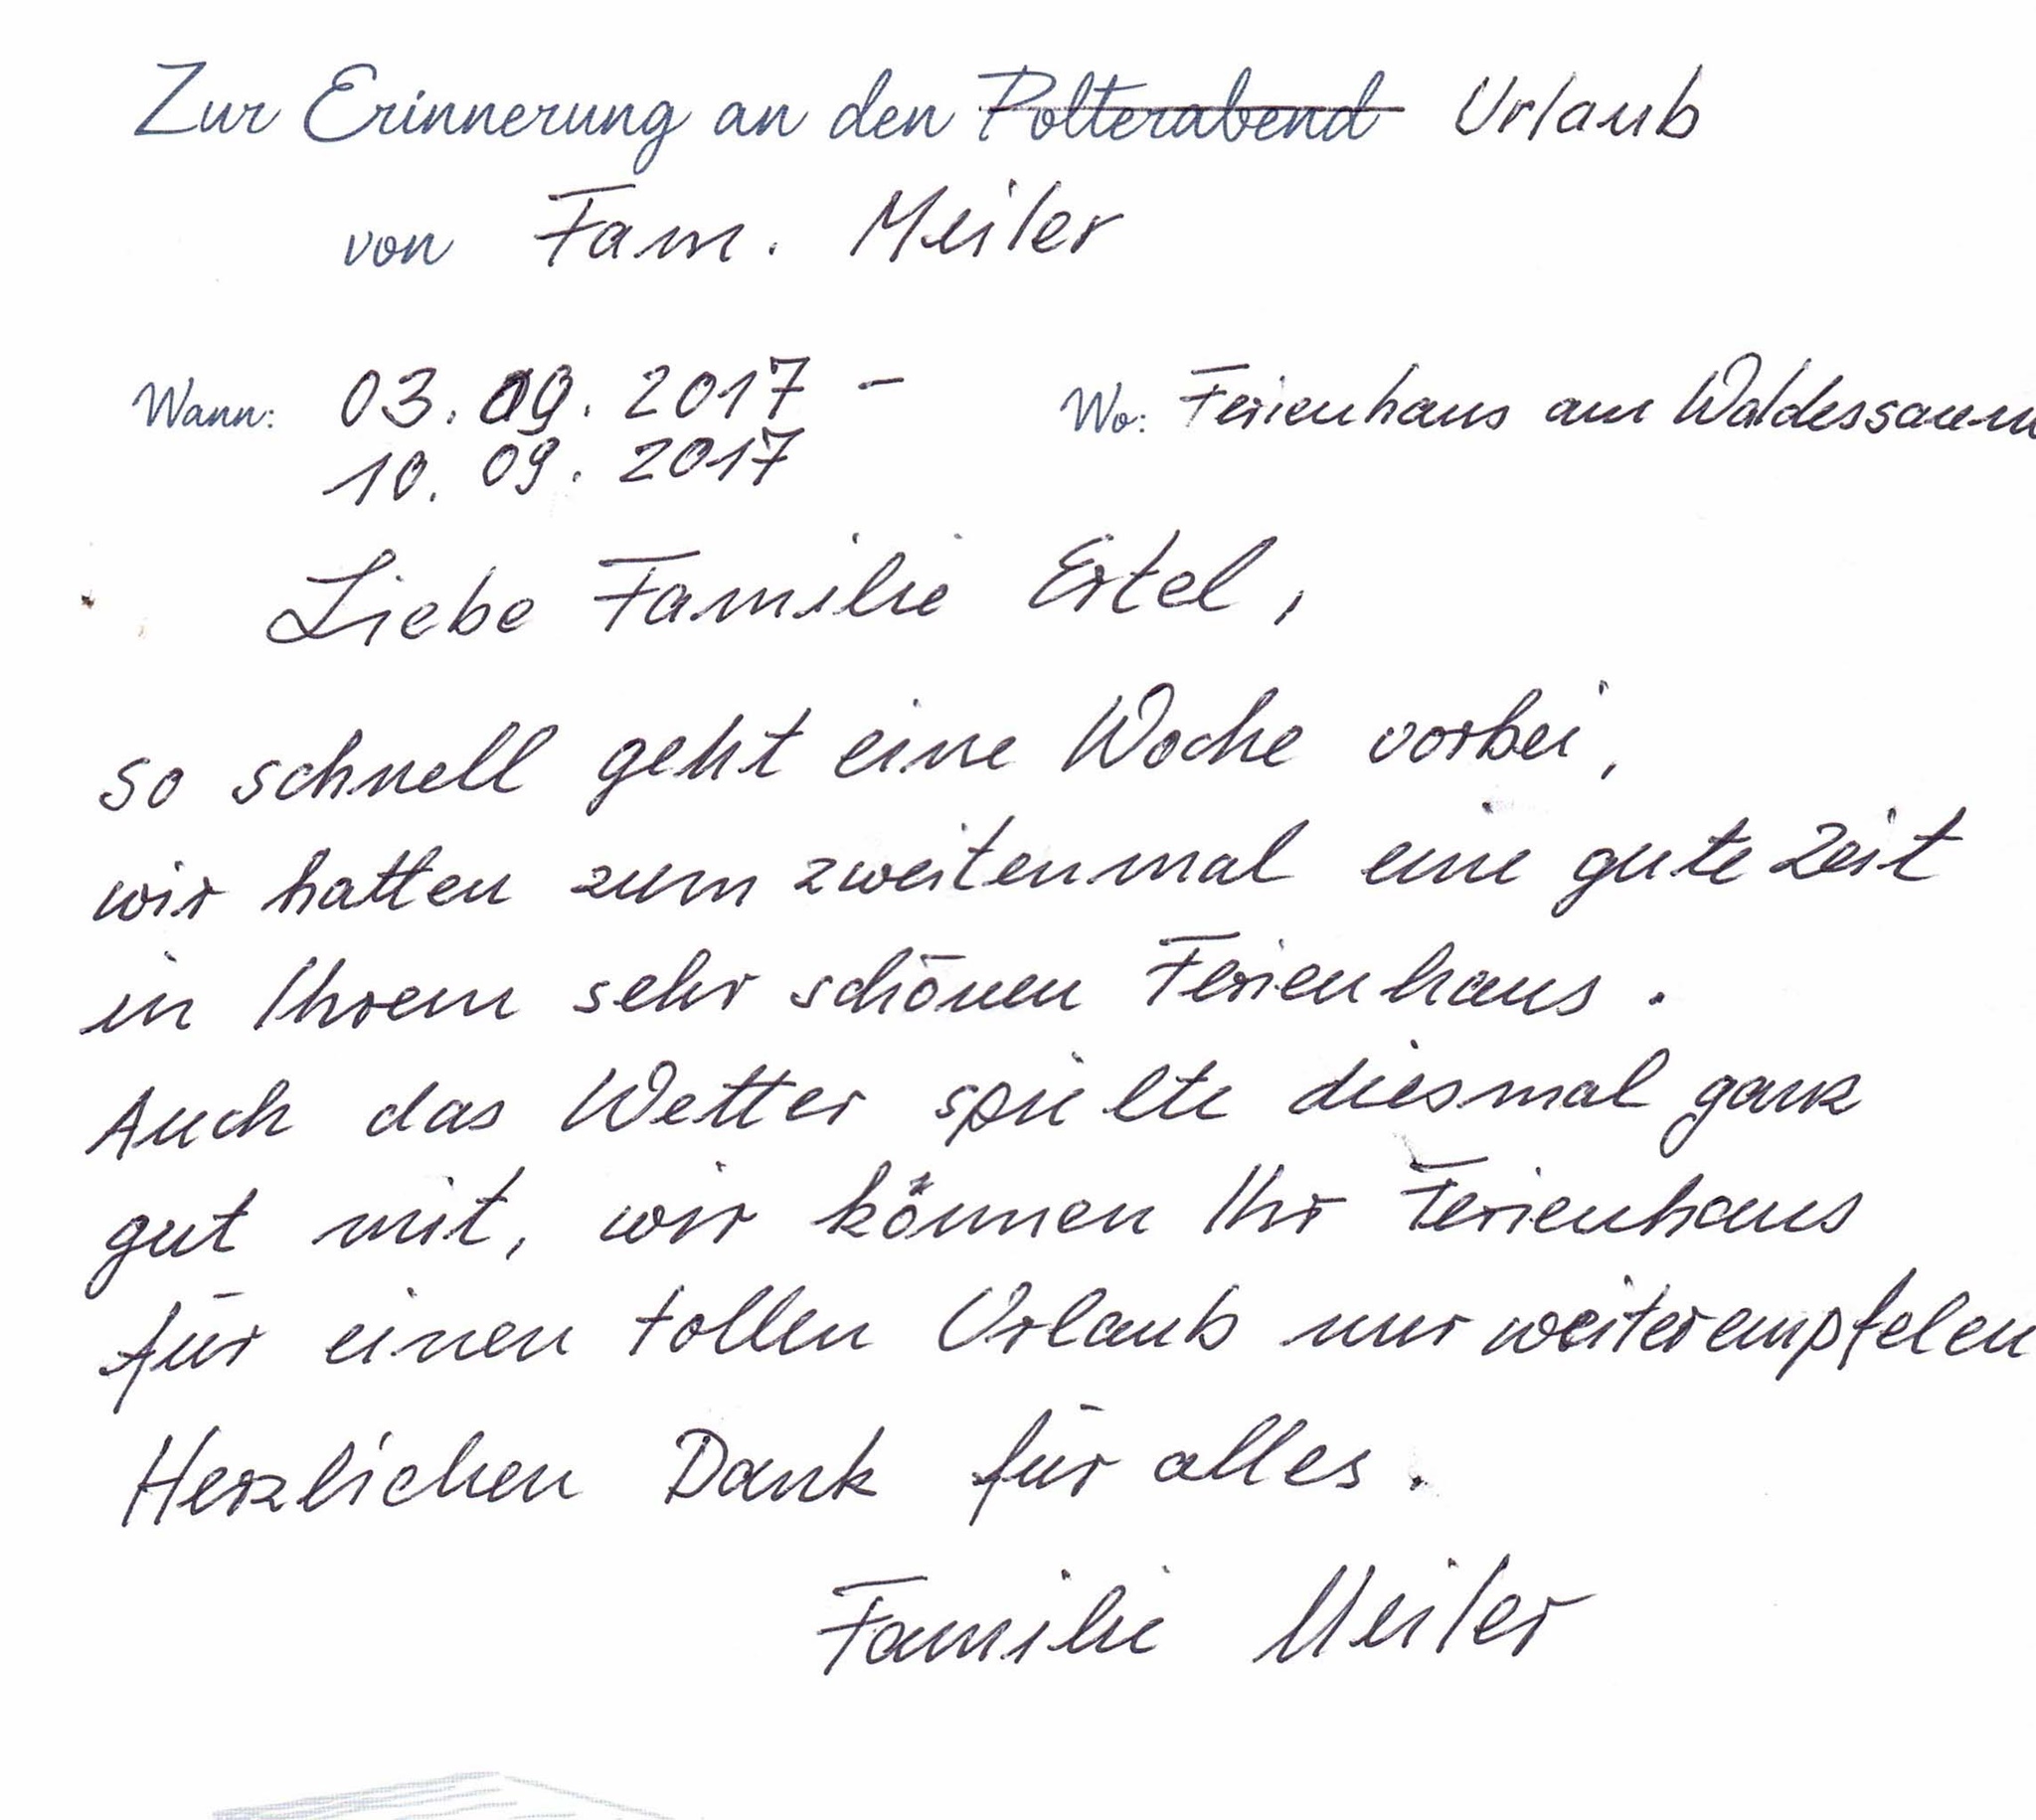 Zur Erinnerung an den Polterabend Urlaub
von Fam. Meiler
Wann: 03. 09. 2017 - Wo: Ferienhaus am Waldessaum
10. 09. 2017
Liebe Familie Ertel,
so schnell geht eine Woche vorbei,
wir hatten zum zweitenmal eine gute Zeit
in Ihrem sehr schönen Ferienhaus.
Auch das Wetter spielte diesmal ganz
gut mit, wir können Ihr Ferienhaus
für einen tollen Urlaub nur weiterempfelen
Herzlichen Dank für alles.
Familie Meiler